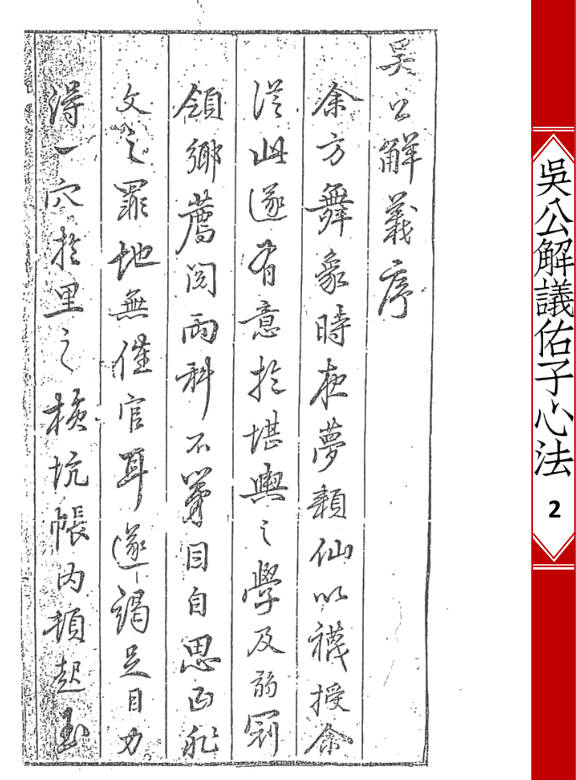 吳公解義序
余方舞象時夜夢頼仙以襪授余
從此遂有意於堪輿之學及弱冠
領鄉薦閱兩科不第因自思曰非
文之罪地無催官耳遂竭足目力
得一穴於里之橫坑帳內頓起玉
吳公解議佑子心法
2